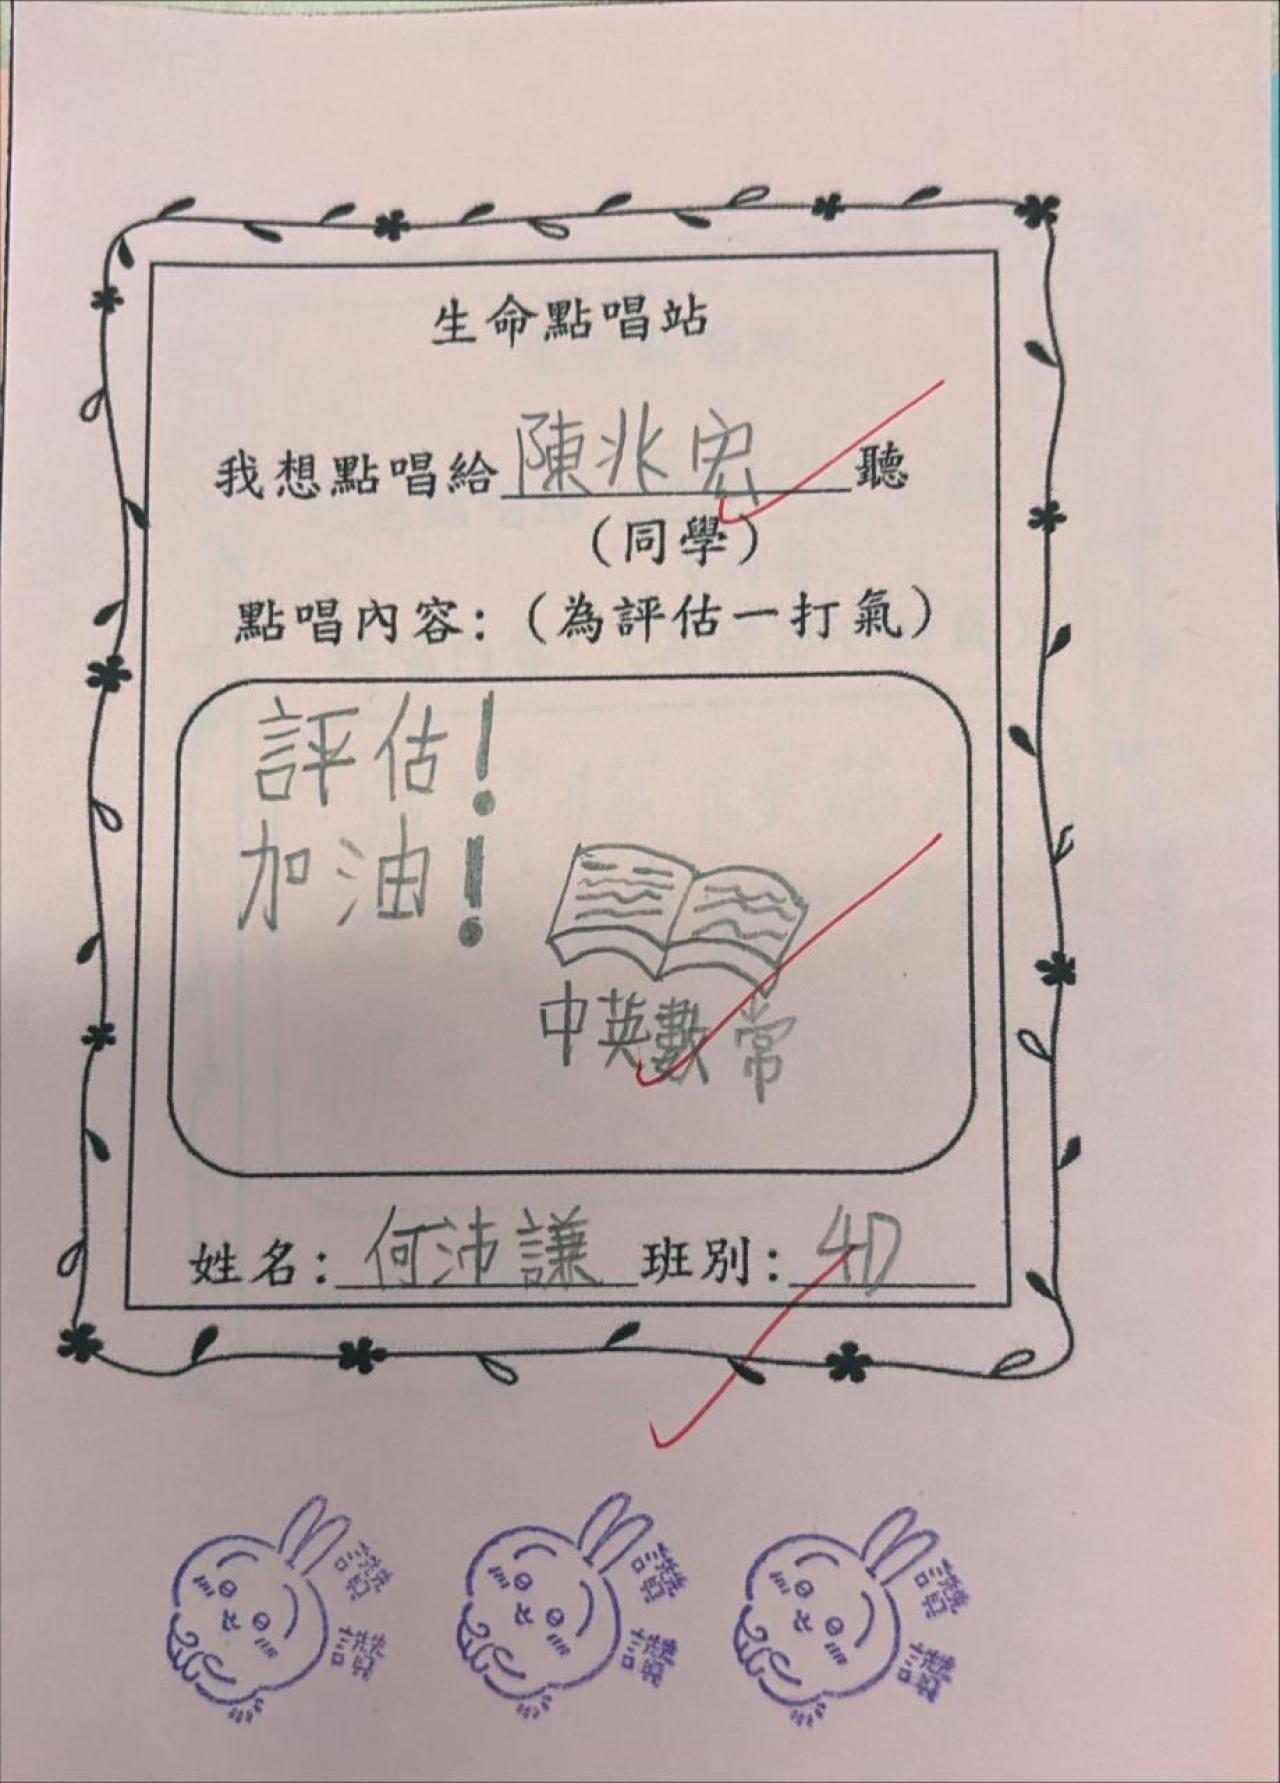 生命點唱站
我想點唱給陳兆宏聽
（同學）
點唱內容：（為評估一打氣）
評估！
加油！
中英數常
姓名：何沛謙 班別：4D
讚讚 讚讚 讚讚